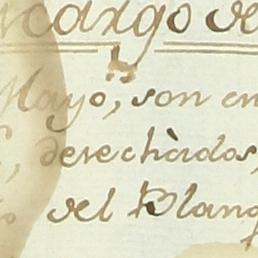 cargo de
Mayo, son en
derechàdos,
del Blanq